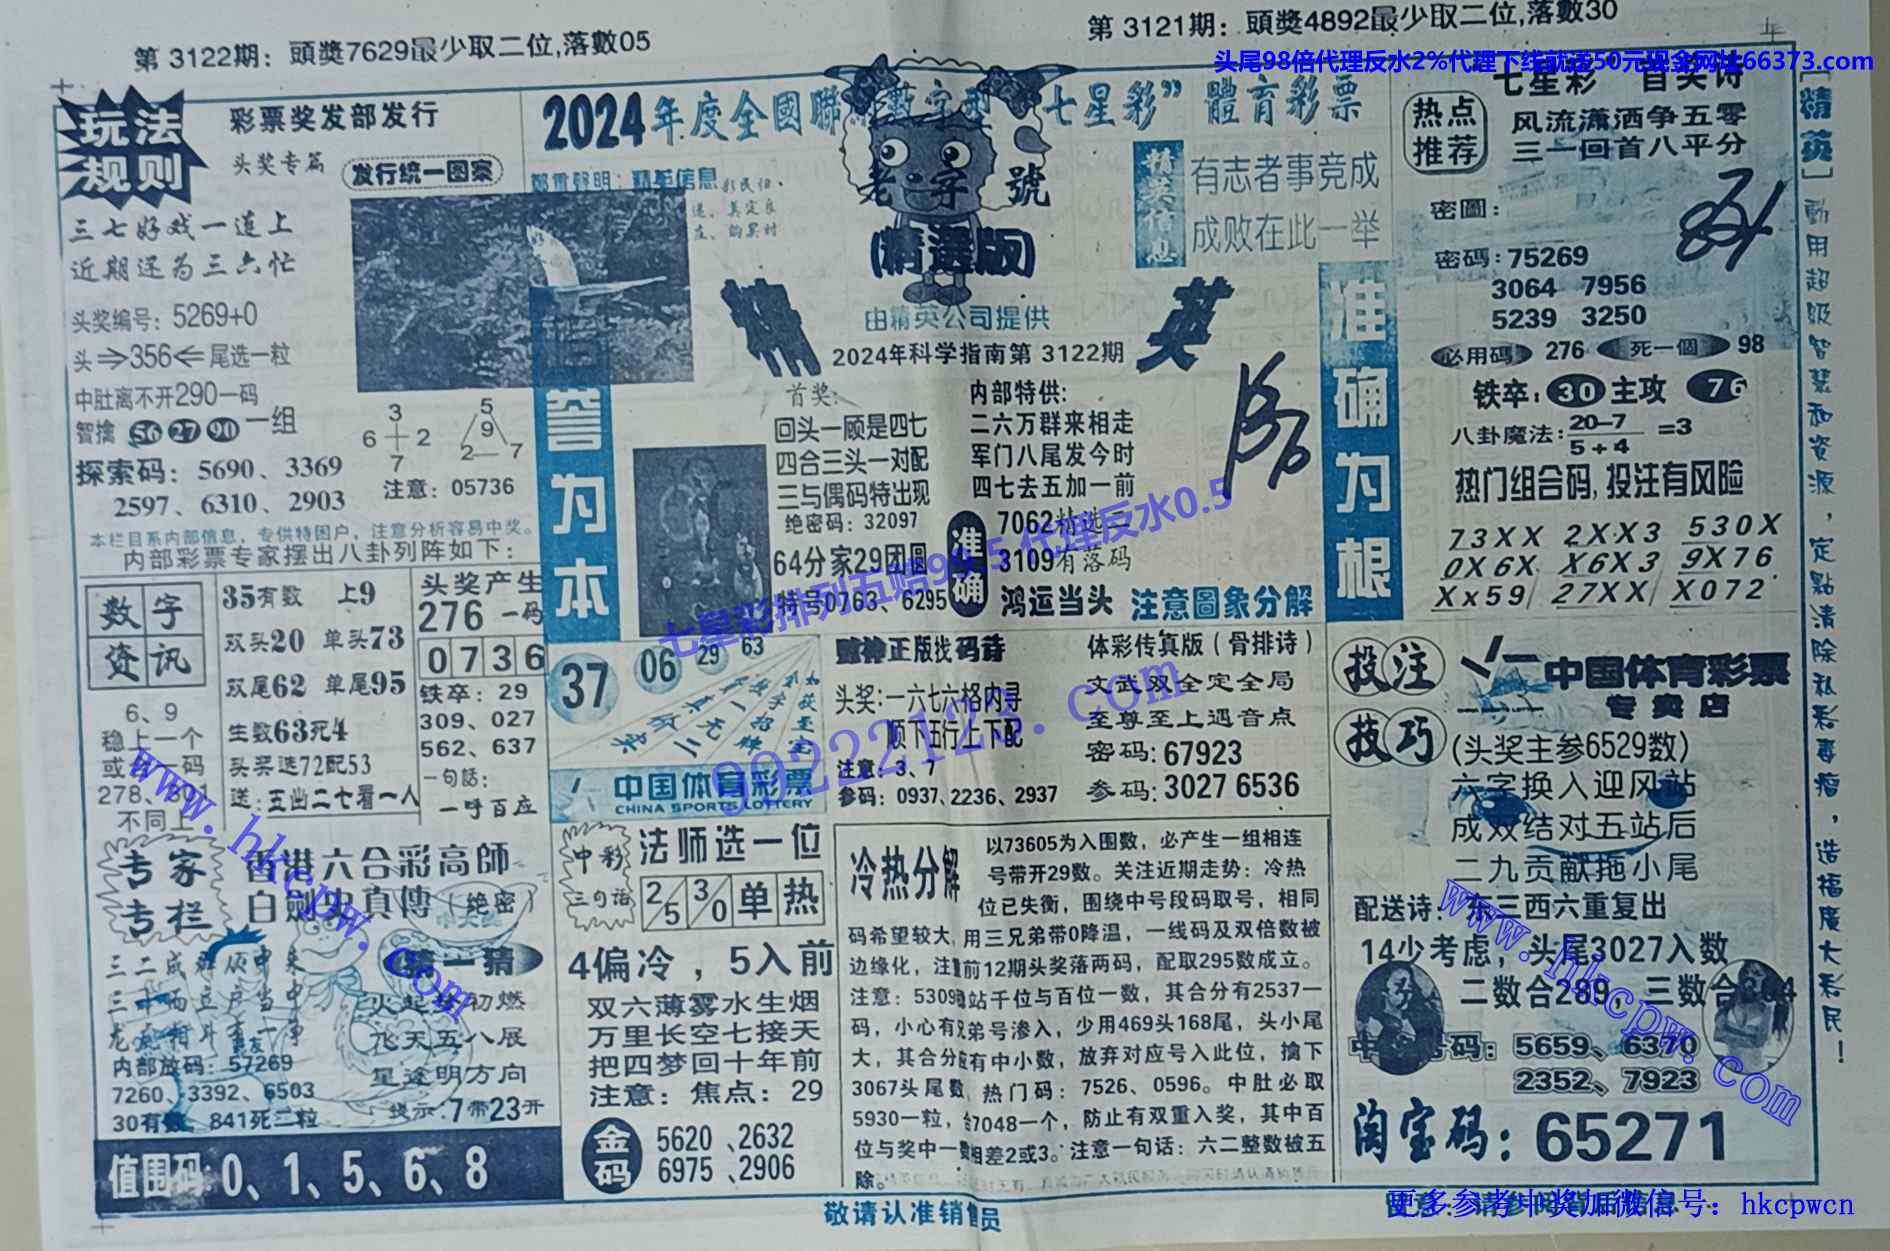 第 3122期：頭獎7629最少取二位,落數05
第 3121期：頭獎4892最少取二位,落數30
头尾98倍代理反水2%代理下线就送50元现金网址66373.com
玩法
规则
彩票奖发部发行
头奖专篇
发行统一图案
三七好戏一连上
近期还为三六忙
头奖编号：5269+0
头⇒356⇐尾选一粒
中肚离不开290一码
智擒 56 27 90 一组
探索码：5690、3369
2597、6310、2903
3
6 2
7
5
9
2 7
注意：05736
本栏目系内部信息，专供特困户，注意分析容易中奖。
内部彩票专家摆出八卦列阵如下：
数字
资讯
6、9
稳上一个
278、301
不同上
35有数 上9
双头20 单头73
双尾62 单尾95
生数63死4
头奖选72配53
送：五出二七看一人
头奖产生
276一码
0736
铁卒：29
309、027
562、637
一句話：
一呼百应
专家
专栏
香港六合彩高師
(绝密)
内部放码：57269
7260、3392、6503
30有数 841死二粒
飞天五八展
星途明方向
提示:7带23开
值围码:0、1、5、6、8
2024年度全國聯網數字型“七星彩”體育彩票
鄭重聲明：精英信息
老字號
(精選版)
由精英公司提供
精英
2024年科学指南第 3122期
精英信息
有志者事竞成
成败在此一举
信誉为本
准确为根
首奖:
回头一顾是四七
四合三头一对配
三与偶码特出现
绝密码：32097
64分家29团圆
特号0763、6295
内部特供:
二六万群来相走
军门八尾发今时
四七去五加一前
准确
7062精选二
3109有落码
鸿运当头 注意圖象分解
136
七星彩排列五赔99.5 代理反水0.5
99222123.com
37 06 29 63
中国体育彩票
CHINA SPORTS LOTTERY
赌神正版找码诗
头奖:一六七六格内寻
顺下五行上下配
注意：3、7
参码：0937、2236、2937
体彩传真版（骨排诗）
文武双全定全局
至尊至上遇音点
密码:67923
参码:3027 6536
中彩
三句语
法师选一位
2/5 3/0 单 热
4偏冷，5入前
双六薄雾水生烟
万里长空七接天
把四梦回十年前
注意：焦点：29
金码
5620、2632
6975、2906
冷热分解
以73605为入围数，必产生一组相连
号带开29数。关注近期走势：冷热
位已失衡，围绕中号段码取号，相同
码希望较大，用三兄弟带0降温，一线码及双倍数被
边缘化，注重前12期头奖落两码，配取295数成立。
注意：5309 站千位与百位一数，其合分有2537一
码，小心有双弟号渗入，少用469头168尾，头小尾
大，其合分 有中小数，放弃对应号入此位，擒下
3067头尾数，热门码：7526、0596。中肚必取
5930一粒，给7048一个，防止有双重入奖，其中百
位与奖中一数相差2或3。注意一句话：六二整数被五
除。
敬请认准销售员
七星彩 首奖诗
热点
推荐
风流潇洒争五零
三一回首八平分
密圖：
密碼：75269
3064 7956
5239 3250
必用碼 276 死一個 98
铁卒：30 主攻 76
八卦魔法：20-7/5+4 =3
热门组合码,投注有风险
73XX 2XX3 530X
0X6X X6X3 9X76
XX59 27XX X072
投注
技巧
中国体育彩票
专卖店
(头奖主参6529数)
六字换入迎风站
成双结对五站后
二九贡献拖小尾
配送诗：东三西六重复出
14少考虑，头尾3027入数
二数合289，三数合
5659、6370
2352、7923
淘宝码：65271
[精英]動用超级智慧和资源，定點清除私彩毒瘤，造福廣大彩民！
www.hkcpw.com
www.hkcpw.com
更多参考中奖加微信号：hkcpwcn